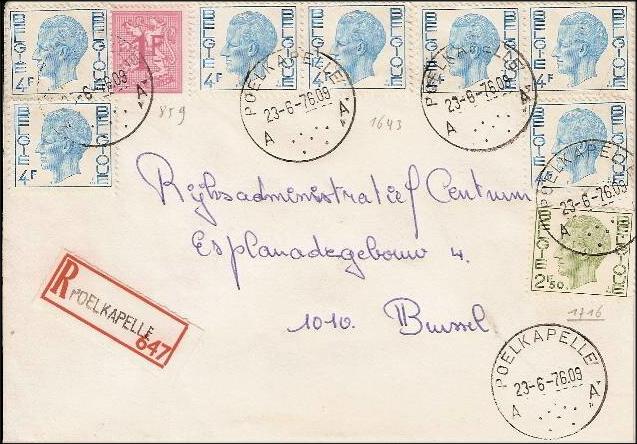 BELGIQUE BELGIE 4F
1F
BELGIQUE BELGIE 4F
BELGIQUE BELGIE 4F
BELGIQUE BELGIE 4F
BELGIQUE BELGIE 4F
23-6-76.09 A
POELKAPELLE 23-6-76.09 A A
POELKAPELLE 23-6-76.09 A A
859
1643
BELGIQUE BELGIE 4F
BELGIE
POELKAPELLE 23-6-76.09 A
Rijksadministratief Centrum
Esplanadegebouw 4.
1010. Brussel
BELGIQUE BELGIE 2F50
1716
R POELKAPELLE 647
POELKAPELLE 23-6-76.09 A A